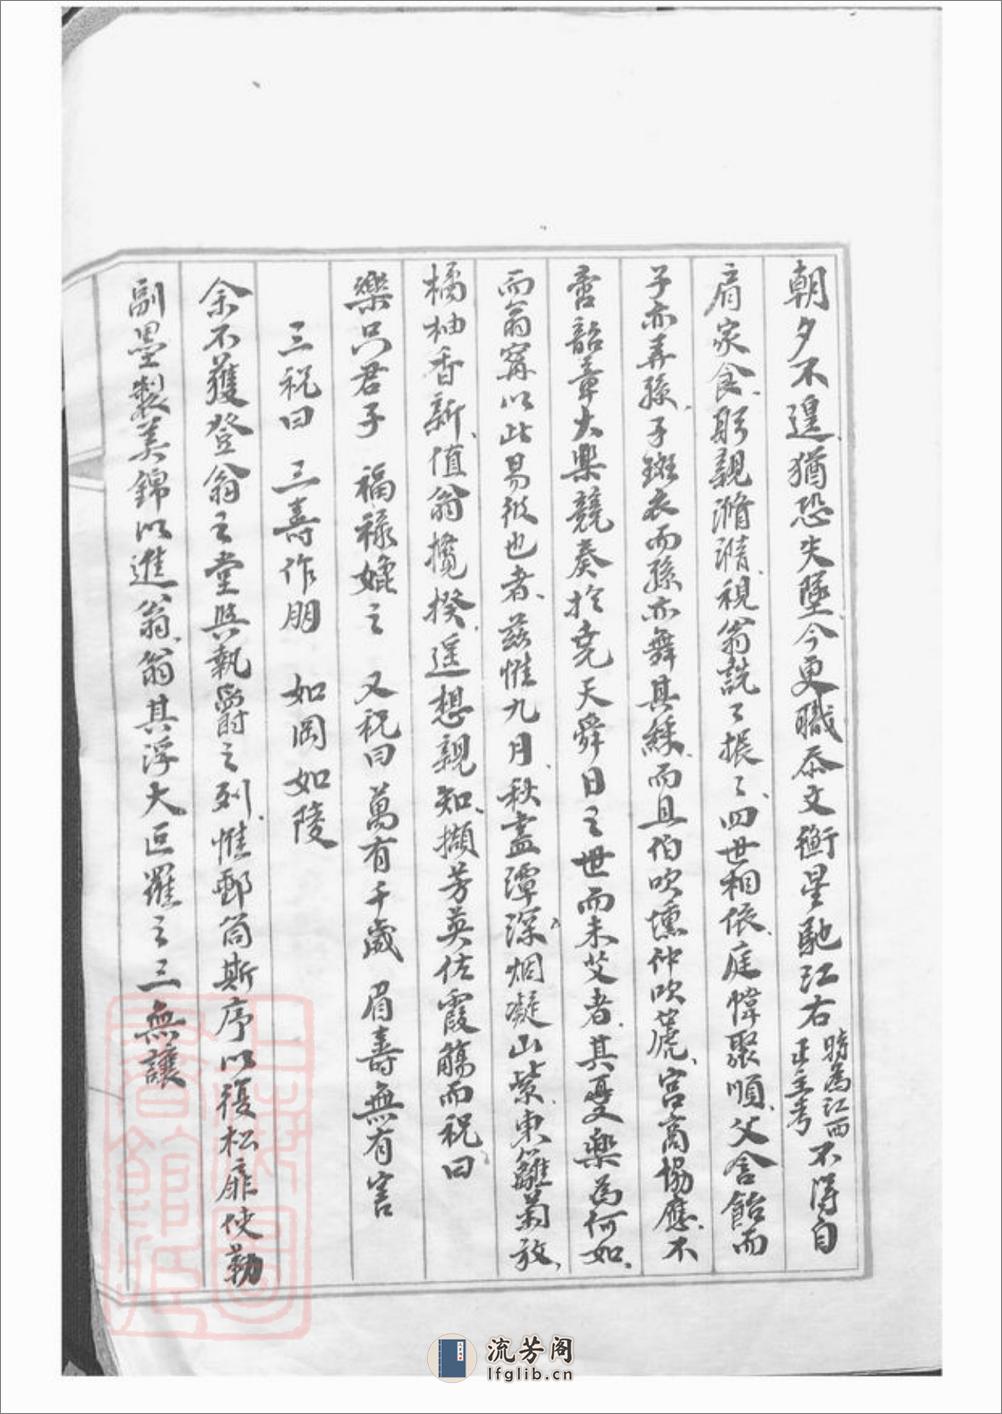 朝夕不遑、猶恐失墜、今更職忝文衡、星馳江右時為江西正主考不得自
肩家食、躬親滫瀡、視翁詵〻振〻、四世相依、庭幃聚順、父含飴而
子亦弄孫、子斑衣而孫亦舞其綵、而且伯吹壎仲吹篪、宮商協應、不
啻韶章大樂競奏於堯天舜日之世而未艾者、其憂樂為何如、
而翁寗以此易彼也者、茲惟九月、秋盡潭深、烟凝山紫、東籬菊放、
橘柚香新、值翁攬揆、遥想親知、擷芳英佐霞觴而祝曰
樂只君子 福禄媲之 又祝曰 萬有千歲 眉壽無有害
三祝曰 三壽作朋 如岡如陵
余不獲登翁之堂與執爵之列、惟郵筒斯序以復松扉使勒
副墨製美錦以進翁、翁其浮大叵羅之三無讓
流芳阁
lfglib.cn